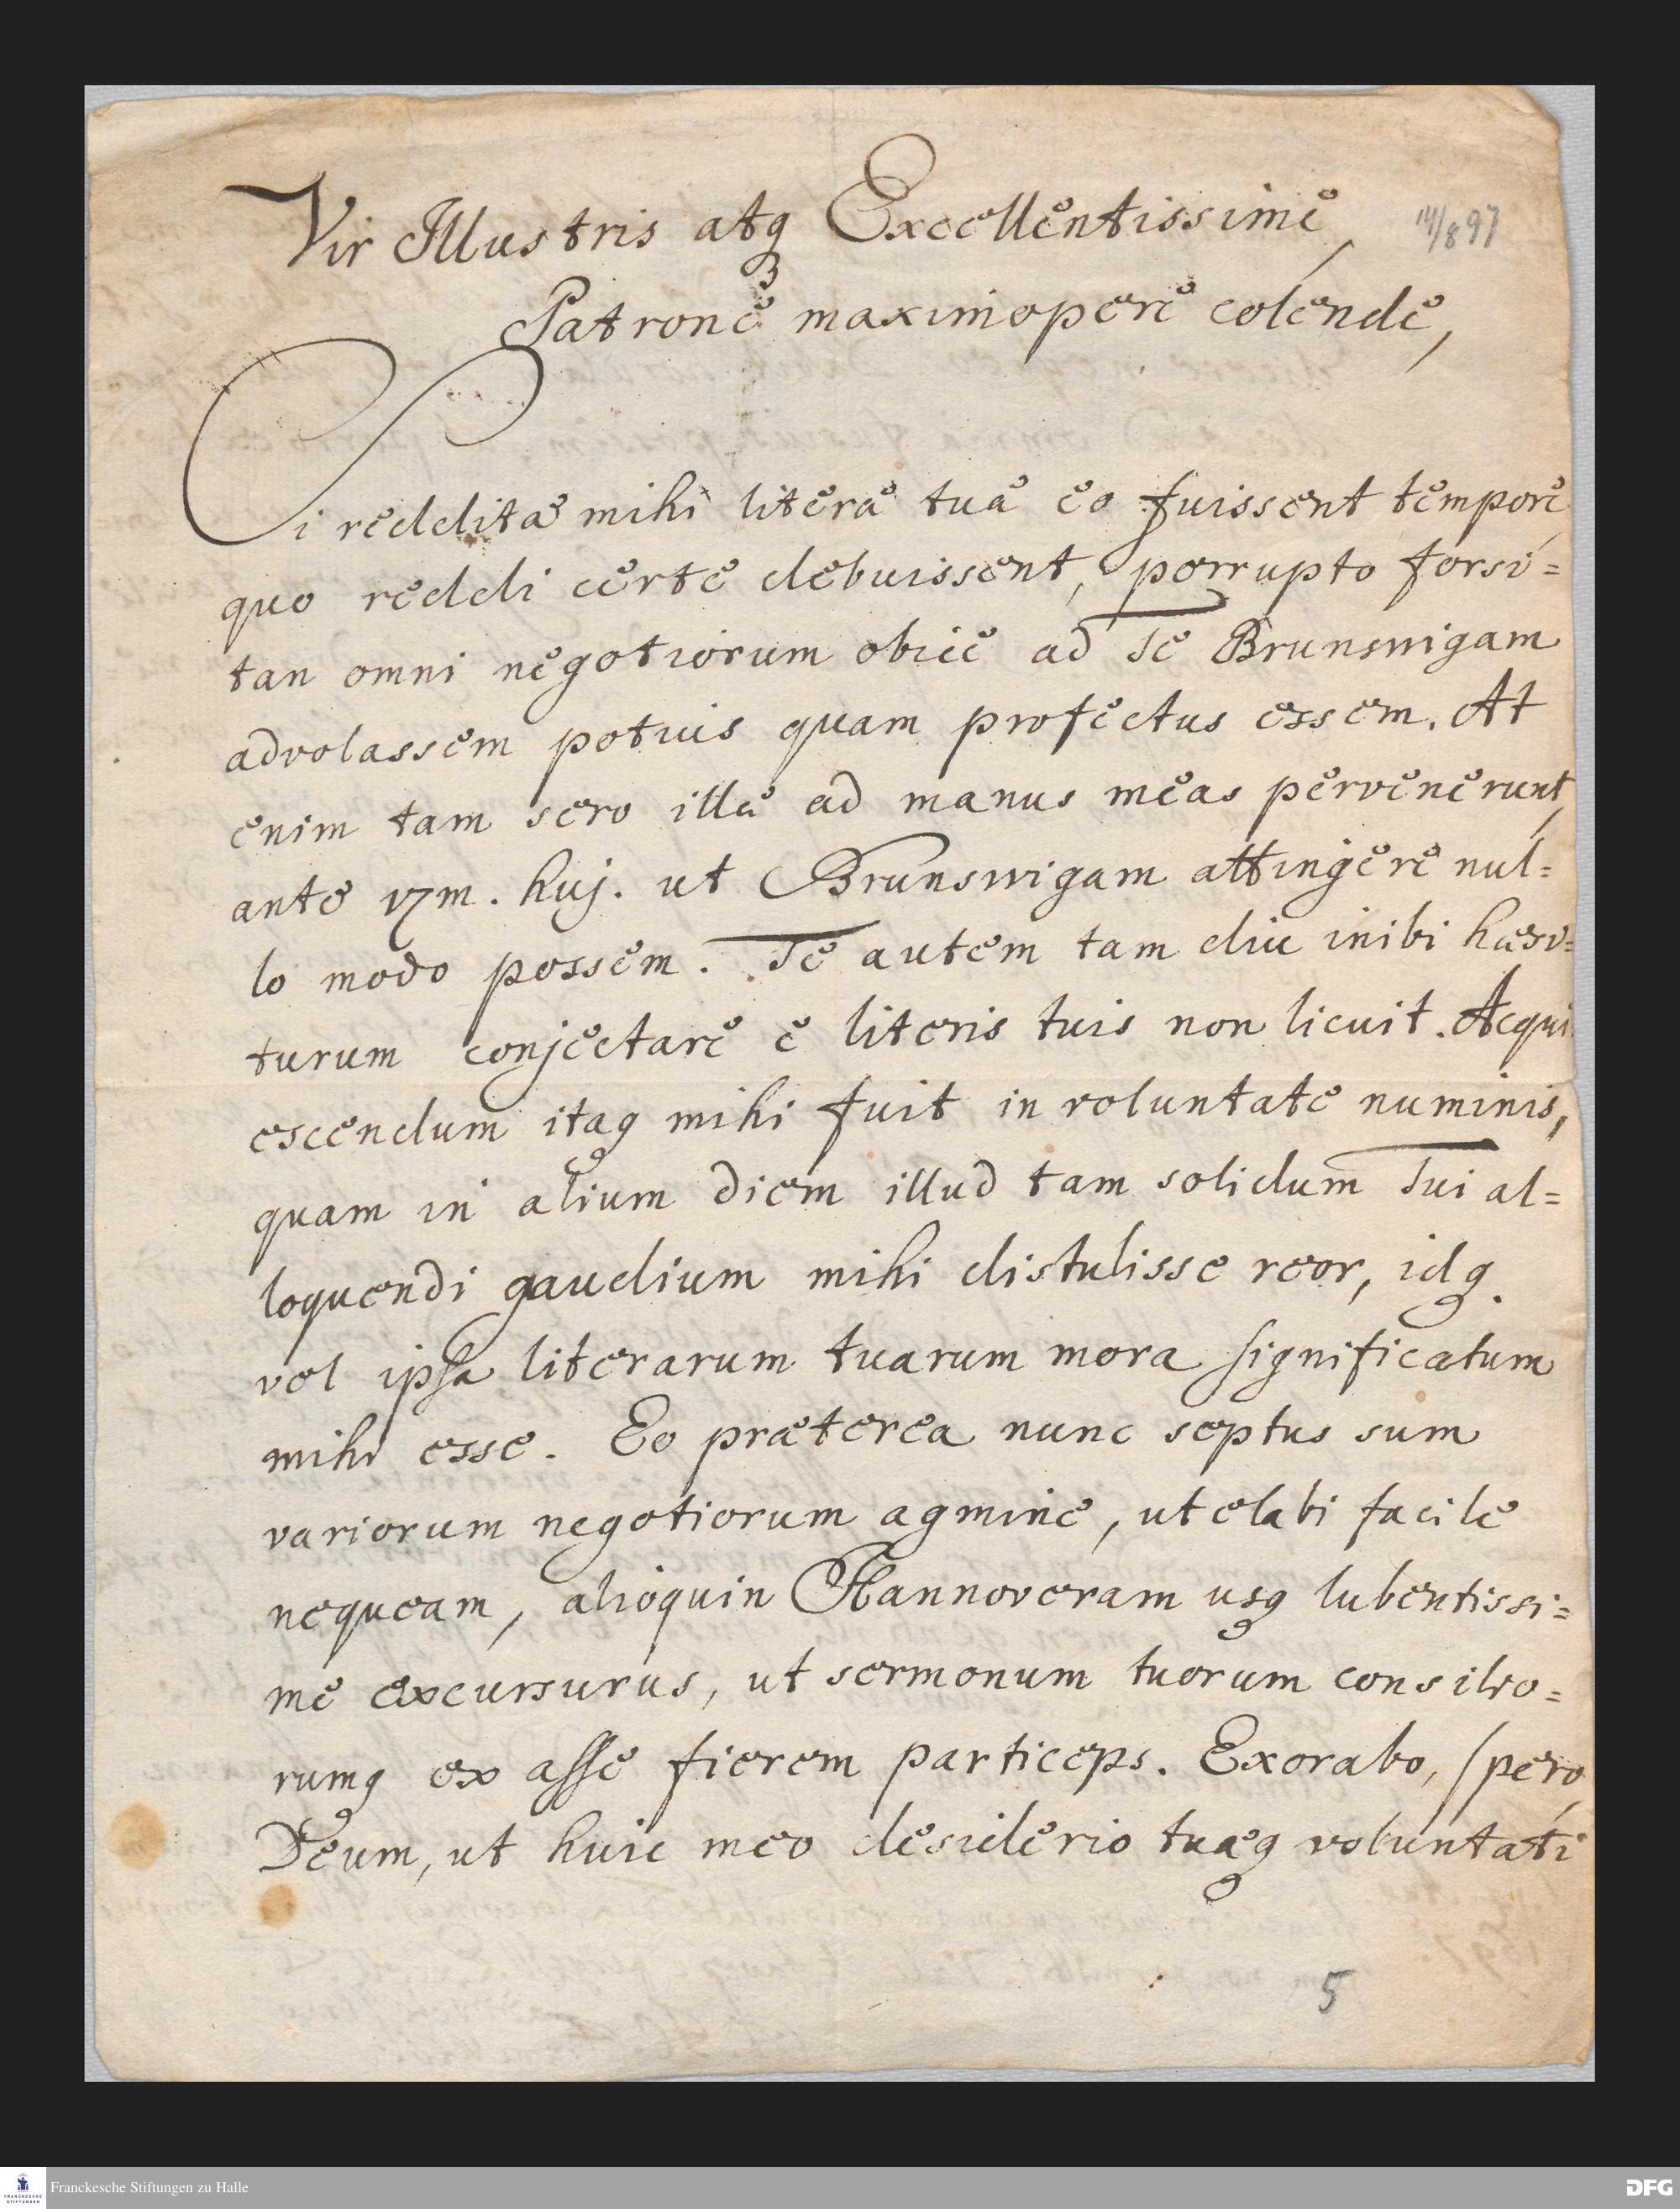 Vir Illustris atq Excellentissime,
14/8 97
Patrone maximopere colende,
Si redditæ mihi literæ tuæ eo fuissent tempore,
quo reddi certe debuissent, perrupto forsi=
tan omni negotiorum obice ad Te Brunswigam
advolassem potius quam profectus essem. At
enim tam sero illæ ad manus meas pervenerunt,
ante 17m. huj. ut Brunswigam attingere nul=
lo modo possem. Te autem tam diu inibi hæsu=
turum conjectare e literis tuis non licuit. Acqui
escendum itaq mihi fuit in voluntate numinis,
quam in alium diem illud tam solidum Tui al=
loquendi gaudium mihi distulisse reor, idq.
vel ipsa literarum tuarum mora significatum
mihi esse. Eo præterea nunc septus sum
variorum negotiorum agmine, ut elabi facile
nequeam, alioquin Hannoveram usq lubentissi=
me excursurus, ut sermonum tuorum consilio=
rumq ex asse fierem particeps. Exorabo, spero,
Deum, ut huic meo desiderio tuæq voluntati
5
FRANCKESCHE STIFTUNGEN
Franckesche Stiftungen zu Halle
DFG